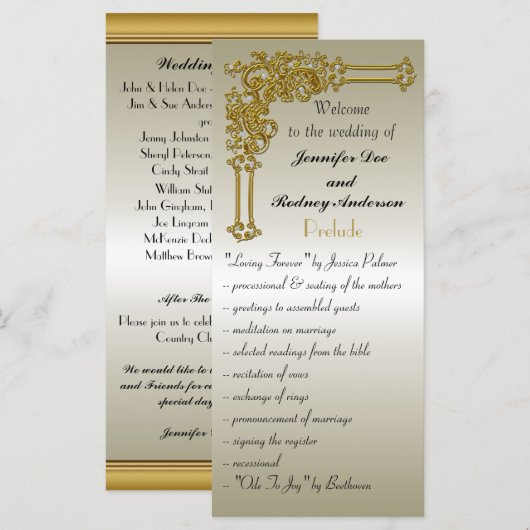 Wedding
John & Helen Doe -
Jim & Sue Anders
gro
Jenny Johnston
Sheryl Peterson,
Cindy Strait
William Stu
John Gingham,
Joe Lingram
McKenzie Deck
Matthew Brown
After The
Please join us to celeb
Country Clu
We would like to
and Friends for ca
special day
Jennifer
Welcome
to the wedding of
Jennifer Doe
and
Rodney Anderson
Prelude
"Loving Forever" by Jessica Palmer
-- processional & seating of the mothers
-- greetings to assembled guests
-- meditation on marriage
-- selected readings from the bible
-- recitation of vows
-- exchange of rings
-- pronouncement of marriage
-- signing the register
-- recessional
-- "Ode To Joy" by Beethoven